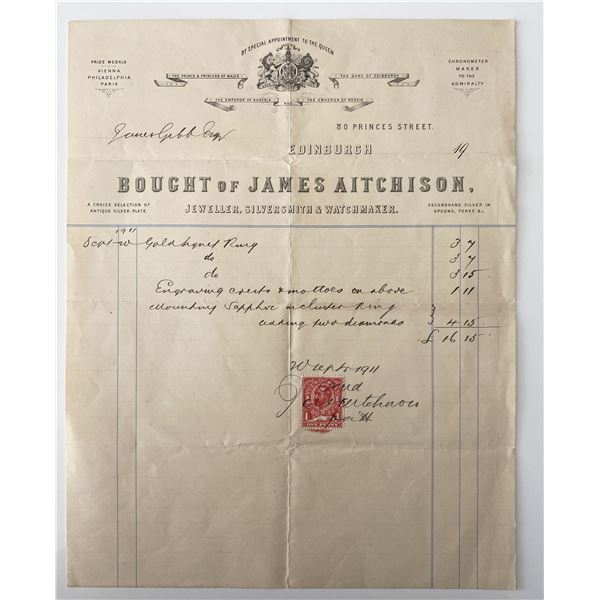 BY SPECIAL APPOINTMENT TO THE QUEEN
PRIZE MEDALS
VIENNA
PHILADELPHIA
PARIS
CHRONOMETER
MAKER
TO THE
ADMIRALTY
THE PRINCE & PRINCESS OF WALES
THE DUKE OF EDINBURGH
THE EMPEROR OF AUSTRIA AND THE EMPEROR OF RUSSIA
80 PRINCES STREET,
James Gibb Esqr
EDINBURGH 19
BOUGHT OF JAMES AITCHISON,
A CHOICE SELECTION OF
ANTIQUE SILVER PLATE.
JEWELLER, SILVERSMITH & WATCHMAKER.
SECONDHAND SILVER IN
SPOONS, FORKS &c.
1911
Sept Gold Signet Ring 3 7
do 3 7
do 3 15
Engraving crests & mottoes on above 1 11
Mounting Sapphire in cluster Ring
adding two diamonds 4 15
£ 16 15
Sept 1911
Paid
Aitchison
ONE PENNY